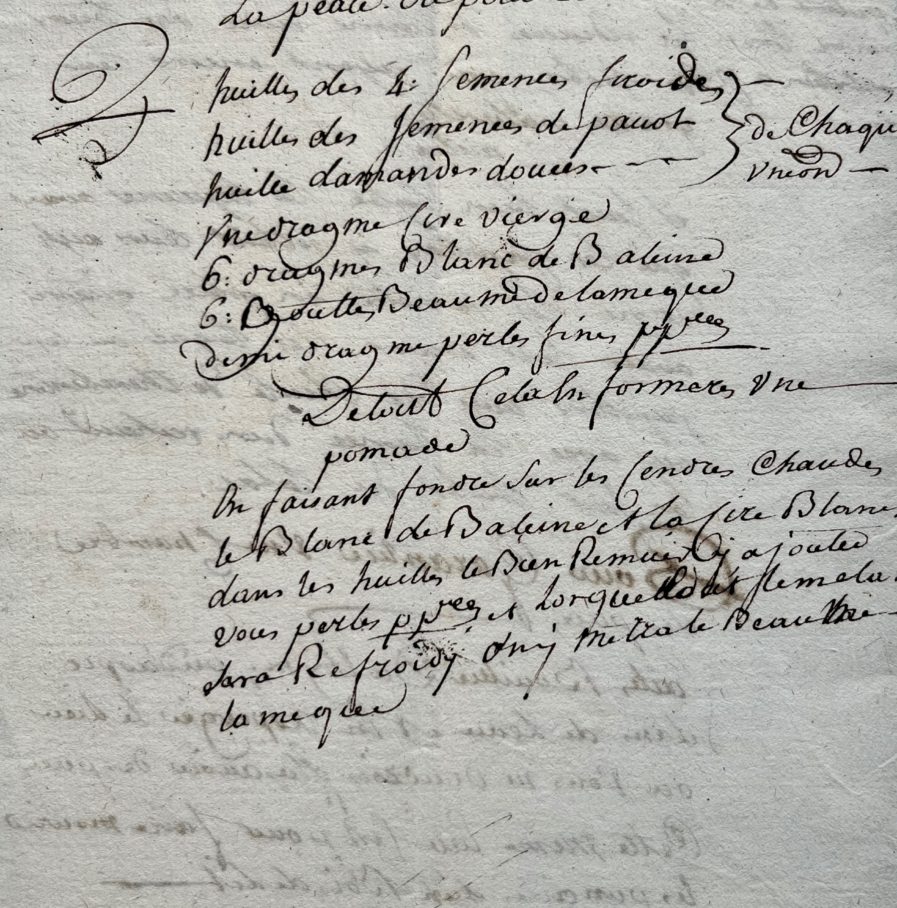 La peau
huilles des 4: semences froides
huilles des semences de pavot
huille damandes douces
de Chaque
vne on
Vne dragme sire vierge
6: dragmes Blanc de Baleine
6: Gouttes Beaume de lameque
demi dragme perles fines pprees
De tout Cela En formeres vne
pomade
En faisant fondre sur les sendres Chaudes
le Blanc de Baleine et la sire Blanc
dans les huilles le Bien Remuer y ajouter
vous perles pprees et lorque tout
sera Refroidy on y metra le Beaume
lameque